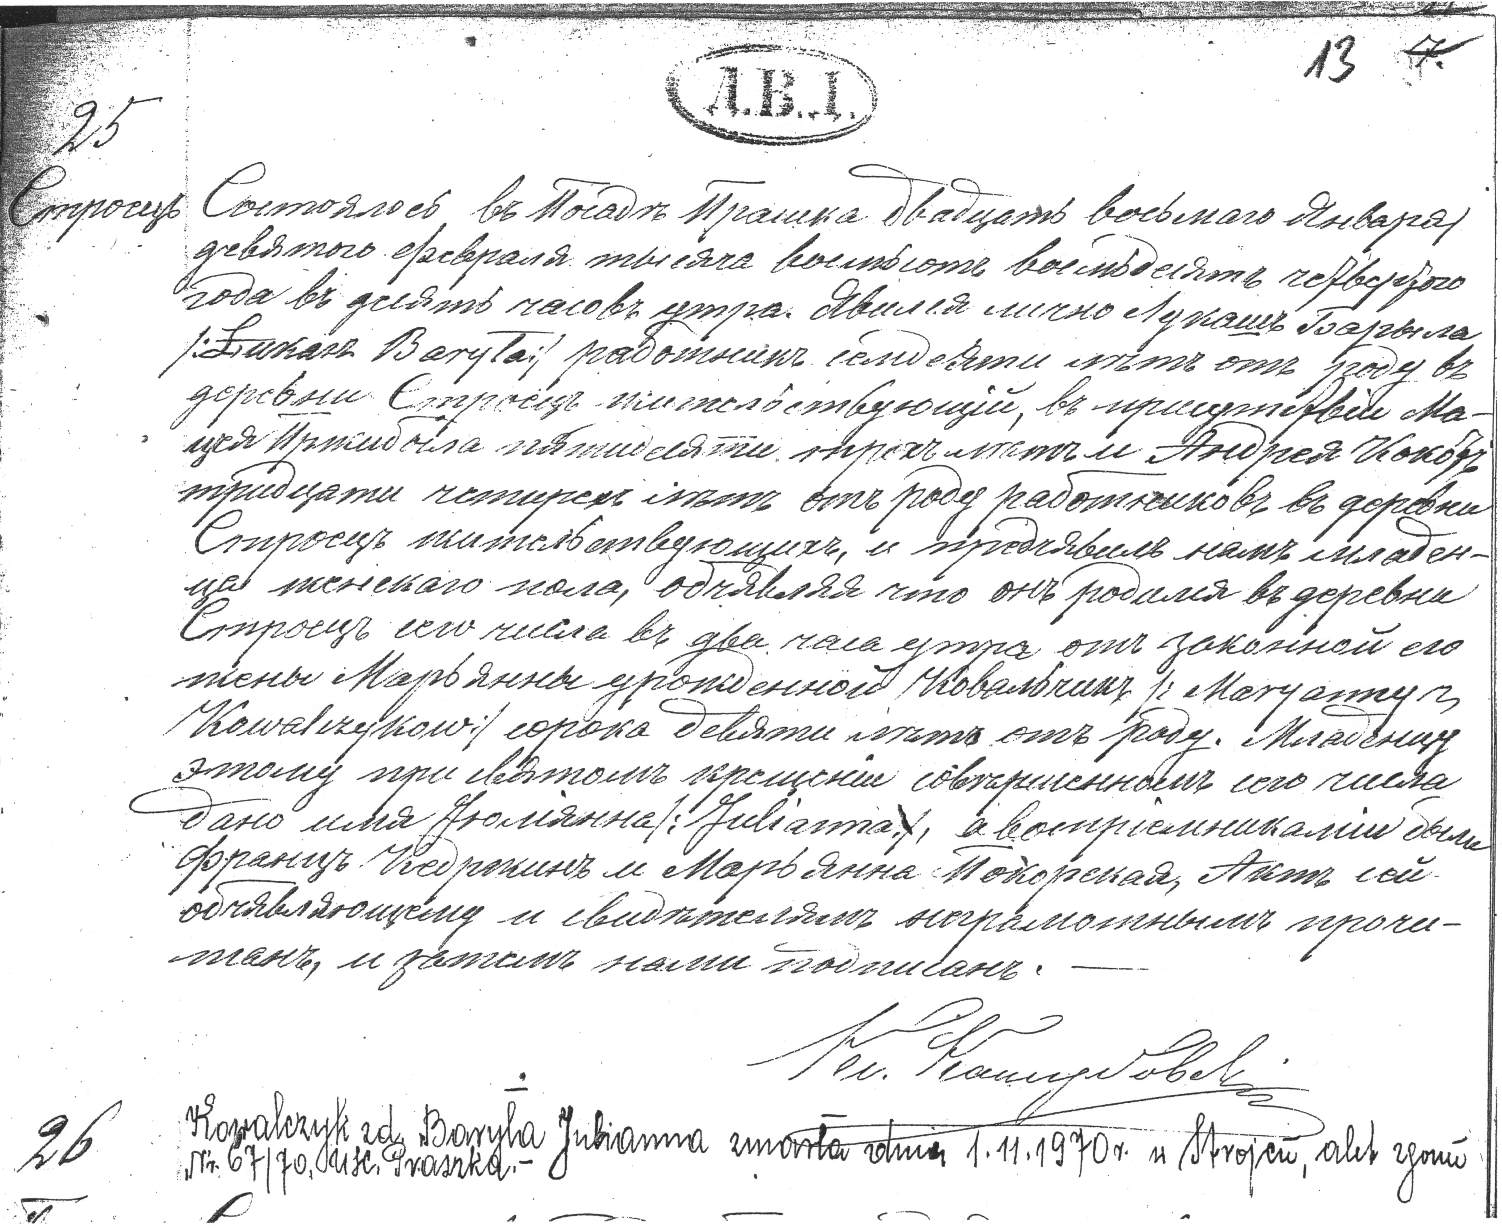 13 7.
Д.В.Д.
25
Строецъ
Состоялось въ Посадѣ Прашка двадцать восьмаго Января/
девятого февраля тысяча восмьсотъ восмьдесятъ четвертого
года въ десять часовъ утра. Явился лично Лукашъ Барыла
/:Łukasz Baryła:/ работникъ семдесяти лѣтъ отъ роду въ
деревни Строецъ жительствующій, въ присутствіи Ма-
цея пятидесяти трехъ лѣтъ и Андрея
тридцати четирехъ лѣтъ отъ роду работниковъ въ деревни
Строецъ жительствующихъ, и предъявилъ намъ младен-
ца женскаго пола, объявляя что онъ родился въ деревни
Строецъ сего числа въ два часа утра отъ законной его
жены Марьянны урожденной Ковальчикъ /: Maryanny z
Kowalczykow:/ сорока девяти лѣтъ отъ роду. Младенцу
этому при святомъ крещеніи совершенномъ сего числа
дано имя Юліянна/: Julianna:/, а воспріемниками были
Францъ Кедржинъ и Марьянна Покорская, Актъ сей
объявляющему и свидѣтелямъ неграмотнымъ прочи-
танъ, и затемъ нами подписанъ. —
26
Kowalczyk zd. Baryła Julianna zmarła dnia 1.11.1970 r. w Strojcu, akt zgonu
Nr. 67/70, USC. Praszka.-